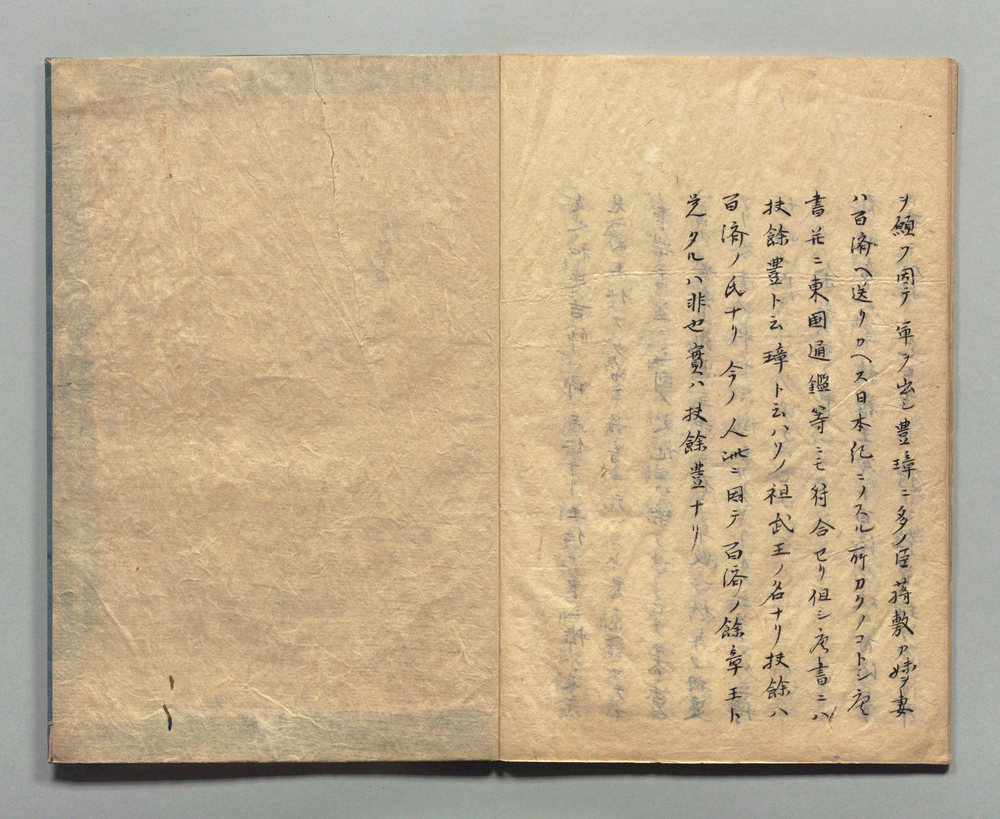 ヲ願フ因テ軍ヲ出シ豊璋ニ多ノ臣蒋敷カ妹ヲ妻
ハ百済ヘ送リカヘス日本紀ニノスル所カクノコトシ唐
書并ニ東國通鑑等ニモ符合セリ但シ唐書ニハ
扶餘豊ト云璋ト云ハソノ祖武王ノ名ナリ扶餘ハ
百済ノ氏ナリ今ノ人此ニ因テ百済ノ餘章王ト
定タルハ非也實ハ扶餘豊ナリ